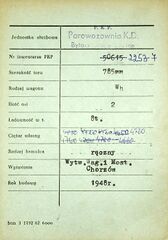 P.K.P.
Jednostka służbowa
Parowozownia K.D.
Nr inwentarza PKP 50615 2253
Szerokość toru 785mm
Rodzaj wagonu Wh
Ilość osi 2
Ładowność w t. 8t.
Ciężar własny
Rodzaj hamulca ręczny
Wytw.Wag.i Most.
Chorzów
Rok budowy 1948r.